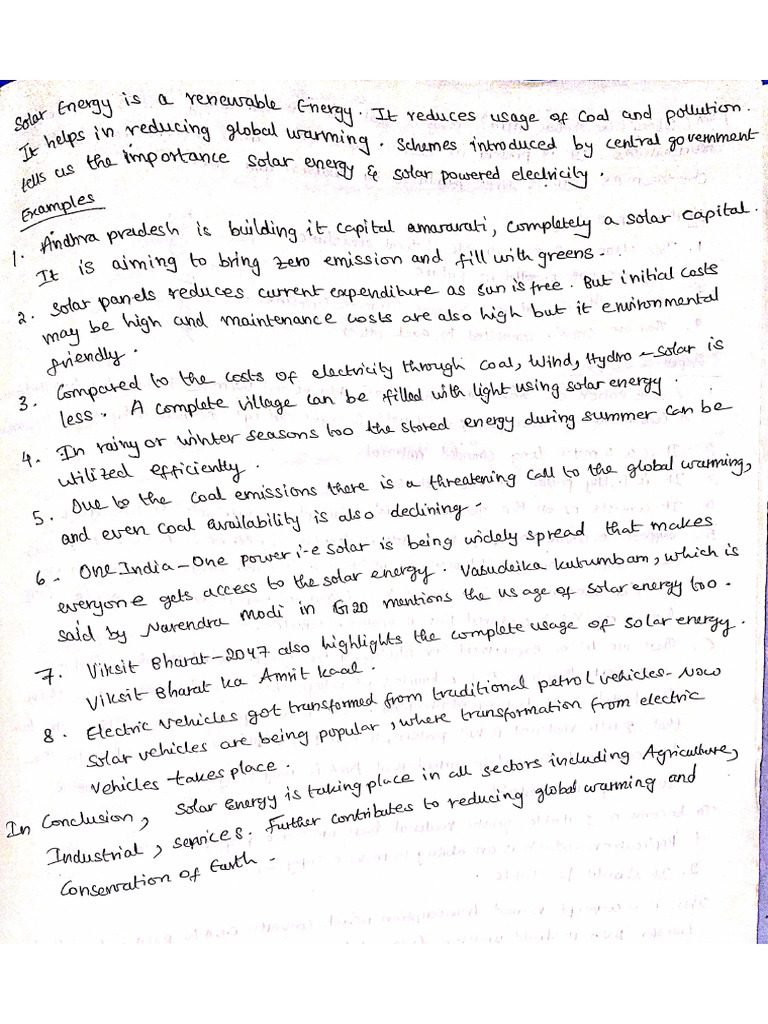 Solar Energy is a renewable Energy. It reduces usage of Coal and pollution.
It helps in reducing global warming. Schemes introduced by central government
tells us the importance solar energy & solar powered electricity.
Examples
1. Andhra pradesh is building it capital amaravati, completely a solar capital.
It is aiming to bring zero emission and fill with greens.
2. Solar panels reduces current expenditure as sun is free. But initial costs
may be high and maintenance costs are also high but it environmental
friendly.
3. Compared to the costs of electricity through coal, Wind, Hydro - Solar is
less. A complete village can be filled with light using solar energy.
4. In rainy or winter seasons too the stored energy during summer can be
utilized efficiently.
5. Due to the coal emissions there is a threatening call to the global warming,
and even coal availability is also declining.
6. One India - One power i-e solar is being widely spread that makes
everyone gets access to the solar energy. Vasudeika kutumbam, which is
said by Narendra Modi in G20 mentions the usage of solar energy too.
7. Viksit Bharat - 2047 also highlights the complete usage of solar energy.
Viksit Bharat ka Amrit kaal.
8. Electric vehicles got transformed from traditional petrol vehicles. Now
solar vehicles are being popular, where transformation from electric
vehicles takes place.
In Conclusion, Solar Energy is taking place in all sectors including Agriculture,
Industrial, services. Further contributes to reducing global warming and
Conservation of Earth.